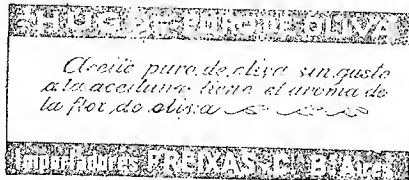 HUGAR POR DE OLIVA
Aceite puro de oliva sin gusto
a la aceituna tiene el aroma de
la flor de oliva
Importadores FREIXAS Cª Bs Aires